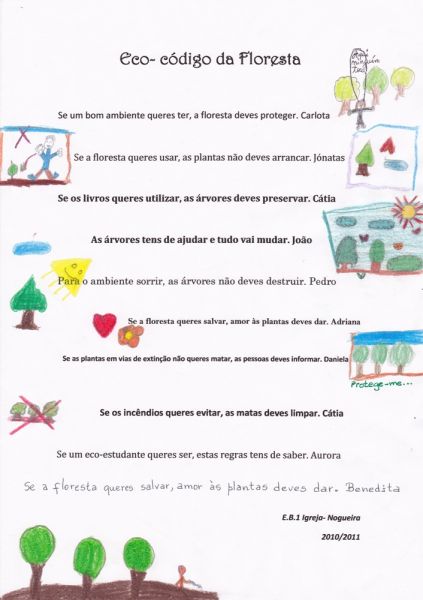 Eco- código da Floresta
Aqui
ninguém
Se um bom ambiente queres ter, a floresta deves proteger. Carlota
Se a floresta queres usar, as plantas não deves arrancar. Jónatas
Se os livros queres utilizar, as árvores deves preservar. Cátia
As árvores tens de ajudar e tudo vai mudar. João
Para o ambiente sorrir, as árvores não deves destruir. Pedro
Se a floresta queres salvar, amor às plantas deves dar. Adriana
Se as plantas em vias de extinção não queres matar, as pessoas deves informar. Daniela
Protege-me...
Se os incêndios queres evitar, as matas deves limpar. Cátia
Se um eco-estudante queres ser, estas regras tens de saber. Aurora
Se a floresta queres salvar, amor às plantas deves dar. Benedita
E.B.1 Igreja- Nogueira
2010/2011